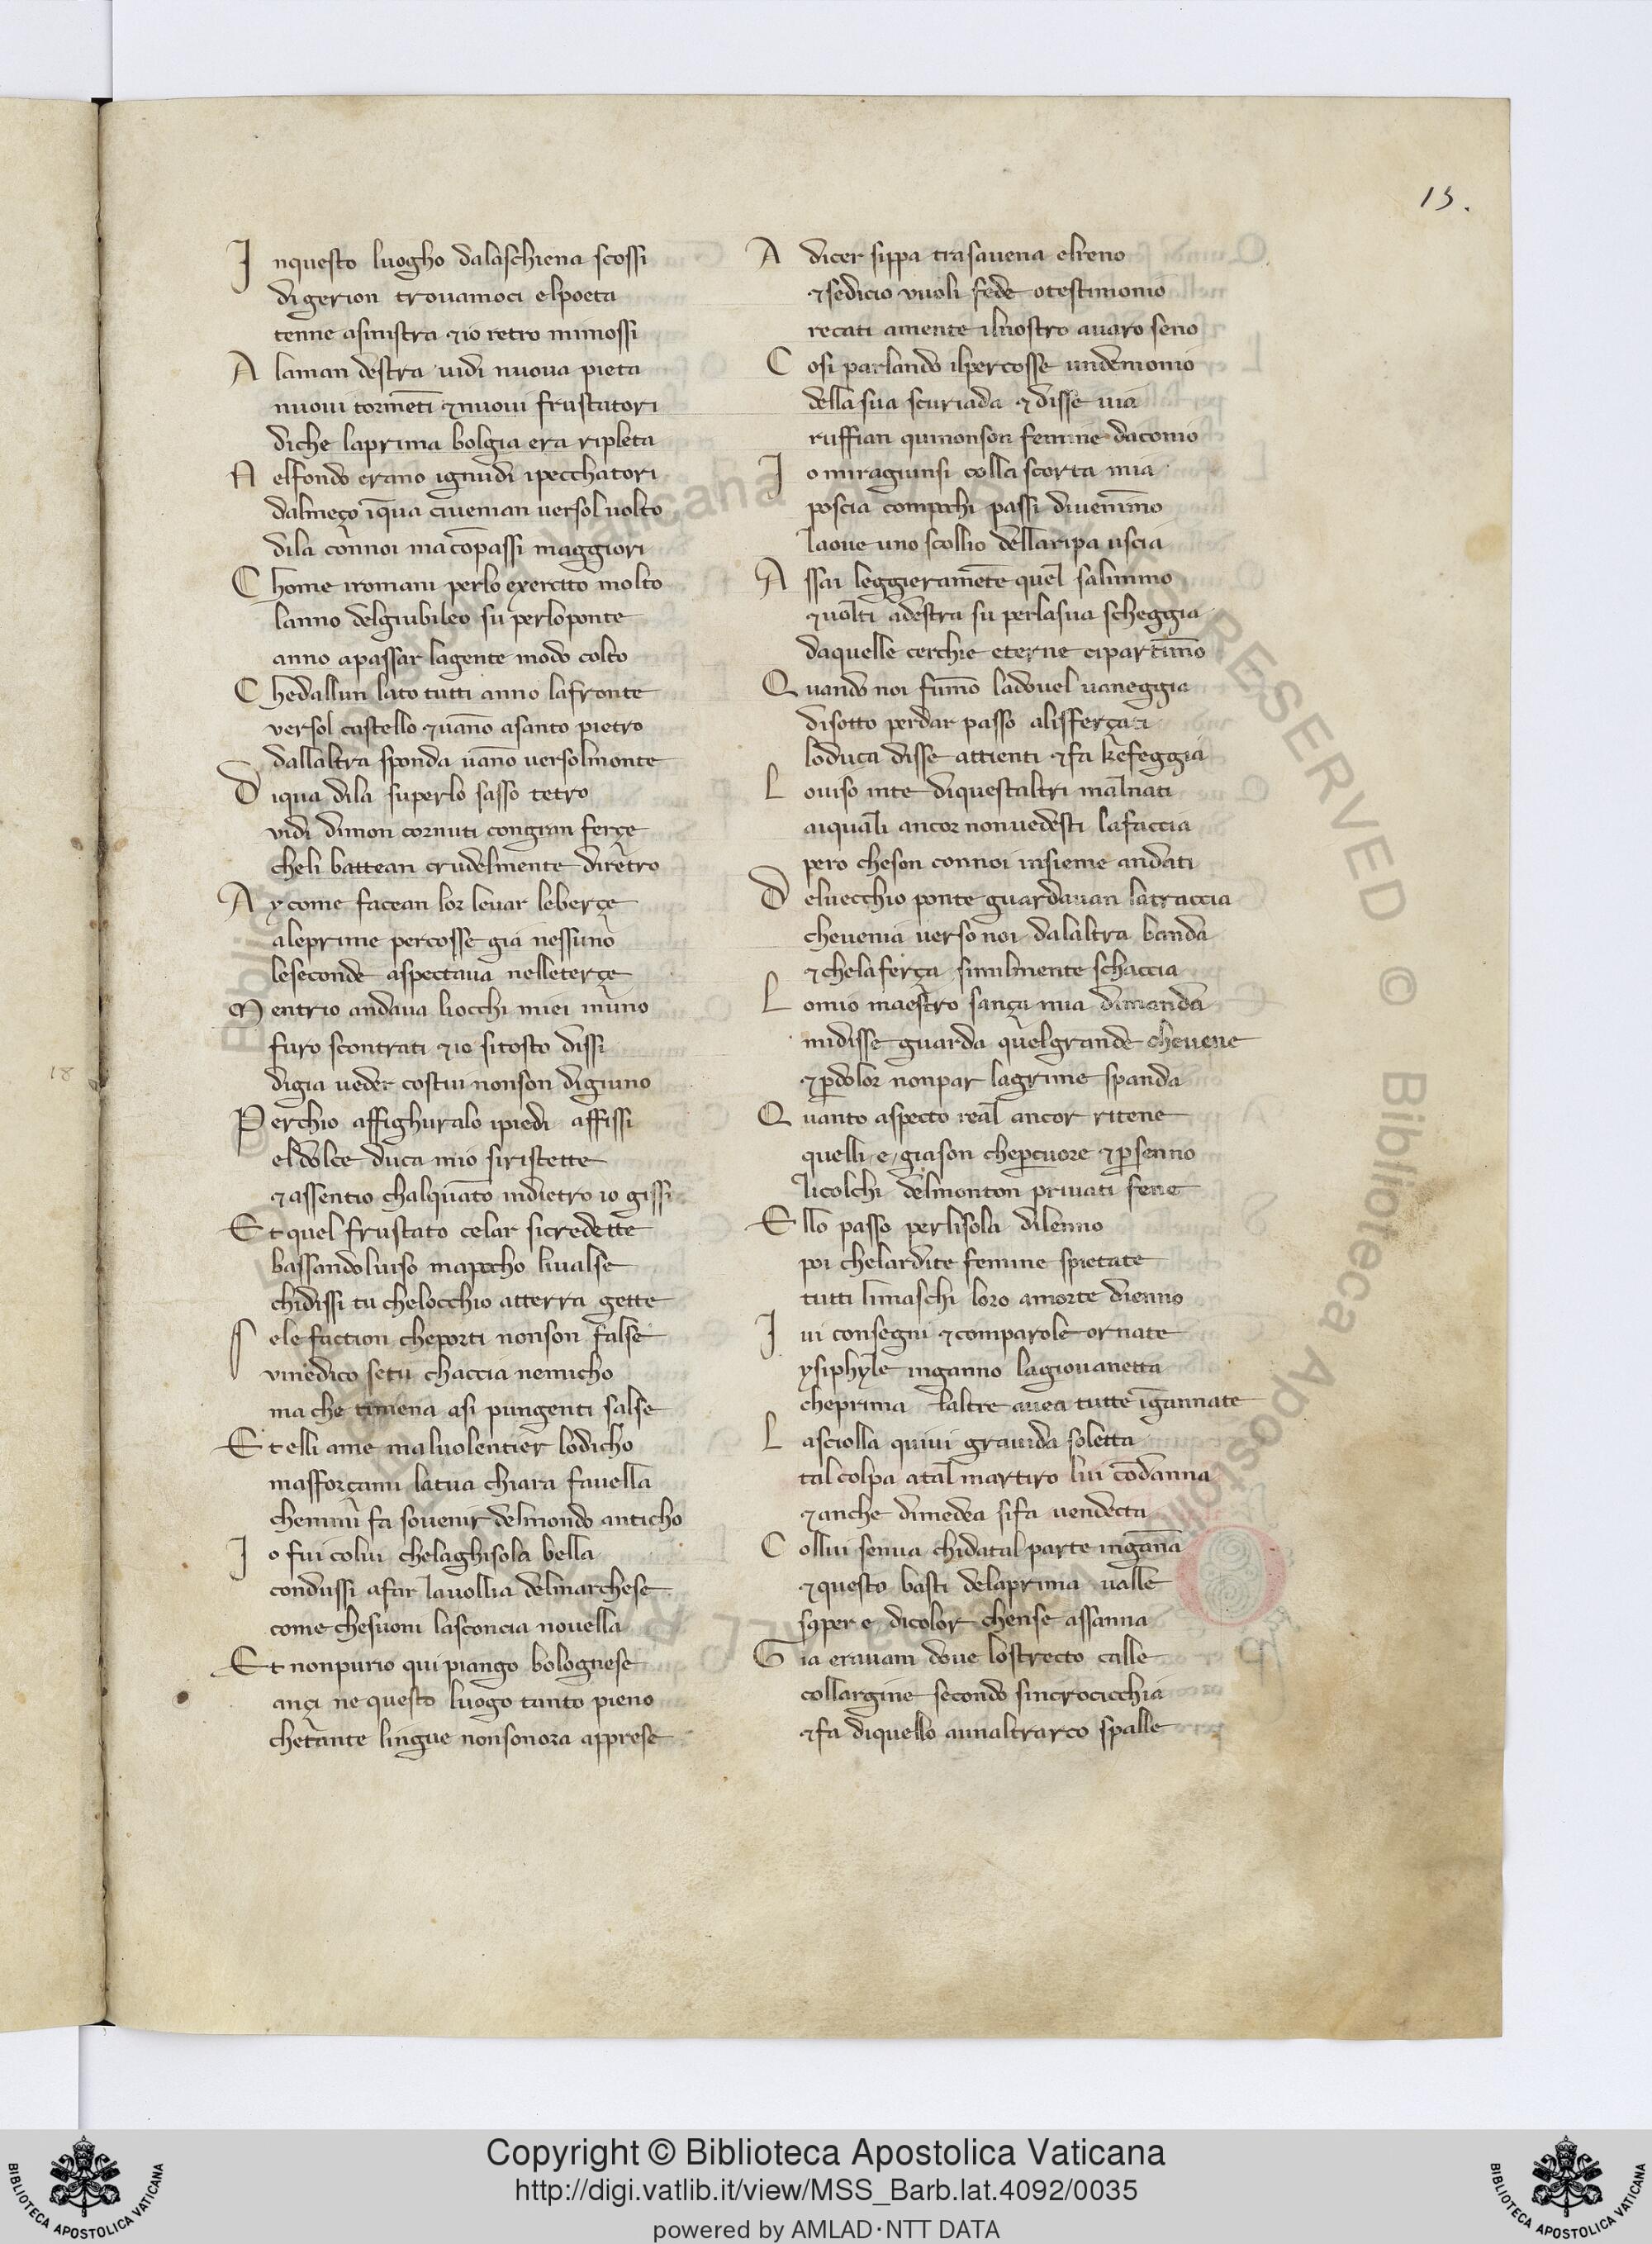 15.
I nquesto luogho dalaschiena scossi
di gerion trovamoci elpoeta
tenne asinistra ⁊io retro mimossi
A laman destra vidi nuova pieta
nuovi tormēti ⁊nuovi frustatori
diche laprima bolgia era ripleta
N elfondo erano ignudi ipecchatori
dalmeço īqua civenian versol volto
dila connoi ma cōpassi maggiori
C home iromani perlo exercito molto
lanno delgiubileo su perloponte
anno apassar lagente modo colto
C hedallun lato tutti anno lafronte
versol castello ⁊vanno asanto pietro
dallaltra sponda vanno versolmonte
D iqua dila superlo sasso tetro
vidi dimon cornuti congran ferçe
cheli battean crudelmente diretro
A y come facean lor levar leberçe
aleprime percosse gia nessuno
leseconde aspectava nelleterçe
M entrio andava liocchi miei inuno
furo scontrati ⁊io sitosto dissi
digia veder costui nonson digiuno
P erchio affighuralo ipiedi affissi
eldolce duca mio siristette
⁊assentio chalquāto indietro io gissi
E t quel frustato celar sicredette
bassandolviso mapocho livalse
chidissi tu chelocchio atterra gette
S ele faction cheporti nonson false
vinedico setu chaccia nemicho
ma che timena asi pungenti salse
E t elli ame malvolentier lodicho
masforçami latua chiara favella
chemmi fa sovenir delmondo anticho
I o fui colui chelaghisola bella
condussi afar lavollia delmarchese
come chesuoni lasconcia novella
E t nonpurio qui piango bolognese
ançi ne questo luogo tanto pieno
chetante lingue nonsonora apprese
A dicer sippa trasavena elreno
⁊sedicio vuoli fede otestimonio
recati amente ilnostro avaro seno
C osi parlando ilpercosse undemonio
della sua scuriada ⁊disse via
ruffian quinonson femine daconio
I o miragiunsi colla scorta mia
poscia compochi passi divenimmo
laove uno scollio dellaripa uscia
A ssai leggieramēte quel salimmo
⁊volti adestra su perlasua scheggia
daquelle cerchie eterne cipartimmo
Q uando noi fummo ladovel vaneggia
disotto perdar passo alisferçati
loduca disse attienti ⁊fa kefeggia
L oviso inte diquestaltri malnati
aiquali ancor nonvedesti lafaccia
pero cheson connoi insieme andati
D elvecchio ponte guardavan latraccia
chevenia verso noi dalaltra banda
⁊chelaferça similmente schaccia
L omio maestro sança mia dimanda
midisse guarda quelgrande chevene
⁊pdolor nonpar lagrime spanda
Q uanto aspecto real ancor ritene
quelli e giason chepcuore ⁊psenno
licolchi delmonton privati fene
E llo passo perlisola dilenno
poi chelardite femine spietate
tutti limaschi loro amorte dienno
I vi consegni ⁊comparole ornate
ysiphyle inganno lagiovanetta
cheprima laltre avea tutte īgannate
L asciolla quivi gravida soletta
tal colpa atal martiro lui cōdanna
⁊anche dimedea sifa vendecta
C ollui senva chidatal parte inganna
⁊questo basti delaprima valle
saper e dicolor chense assanna
G ia eravam dove lostrecto calle
collargine secondo sincrocicchia
⁊fa diquello aunaltrarco spalle
18
Copyright © Biblioteca Apostolica Vaticana
http://digi.vatlib.it/view/MSS_Barb.lat.4092/0035
powered by AMLAD·NTT DATA
BIBLIOTECA APOSTOLICA VATICANA
BIBLIOTECA APOSTOLICA VATICANA